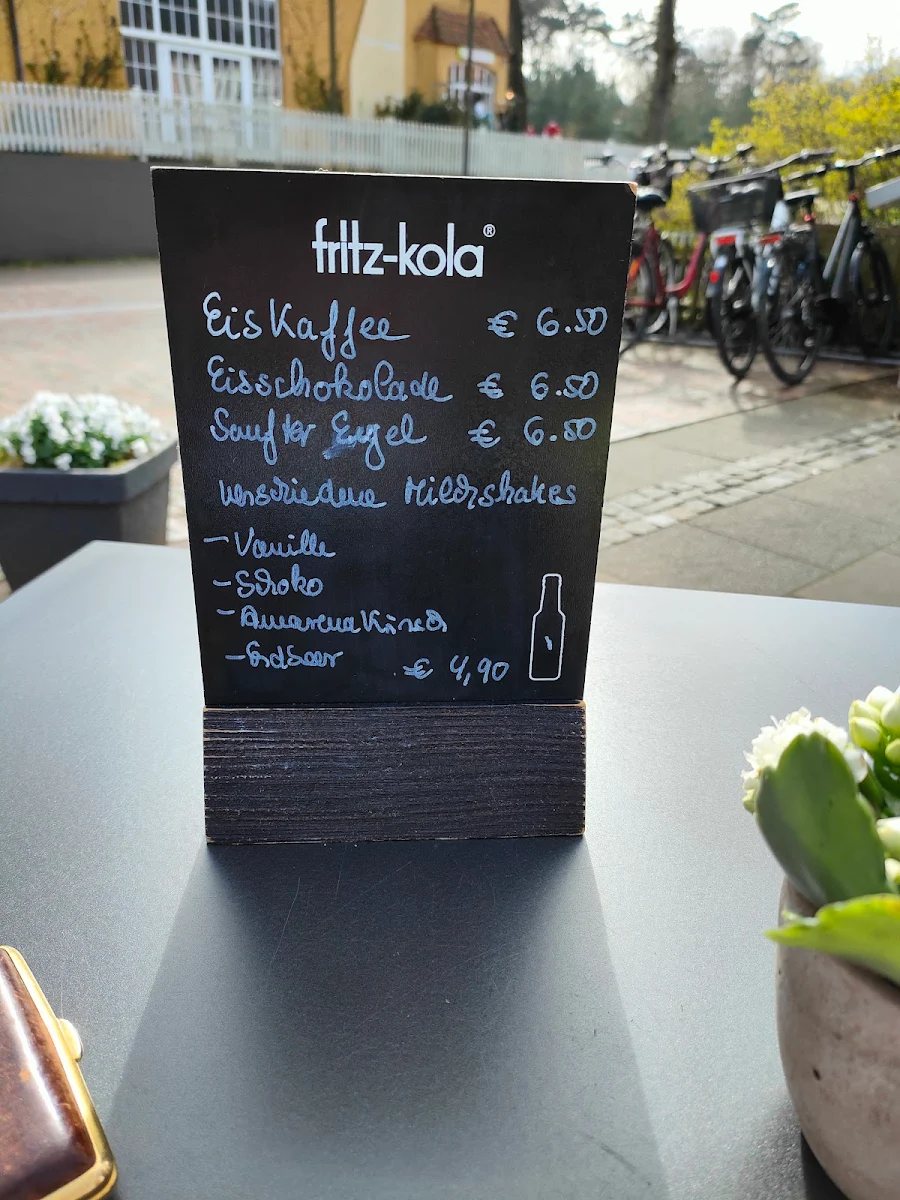 fritz-kola®
EisKaffee € 6.50
Eisschokolade € 6.50
Saufter Engel € 6.50
verschiedene Milchshakes
- Vanille
- Schoko
- Amarena Kirsch
- Erdbeer € 4,90